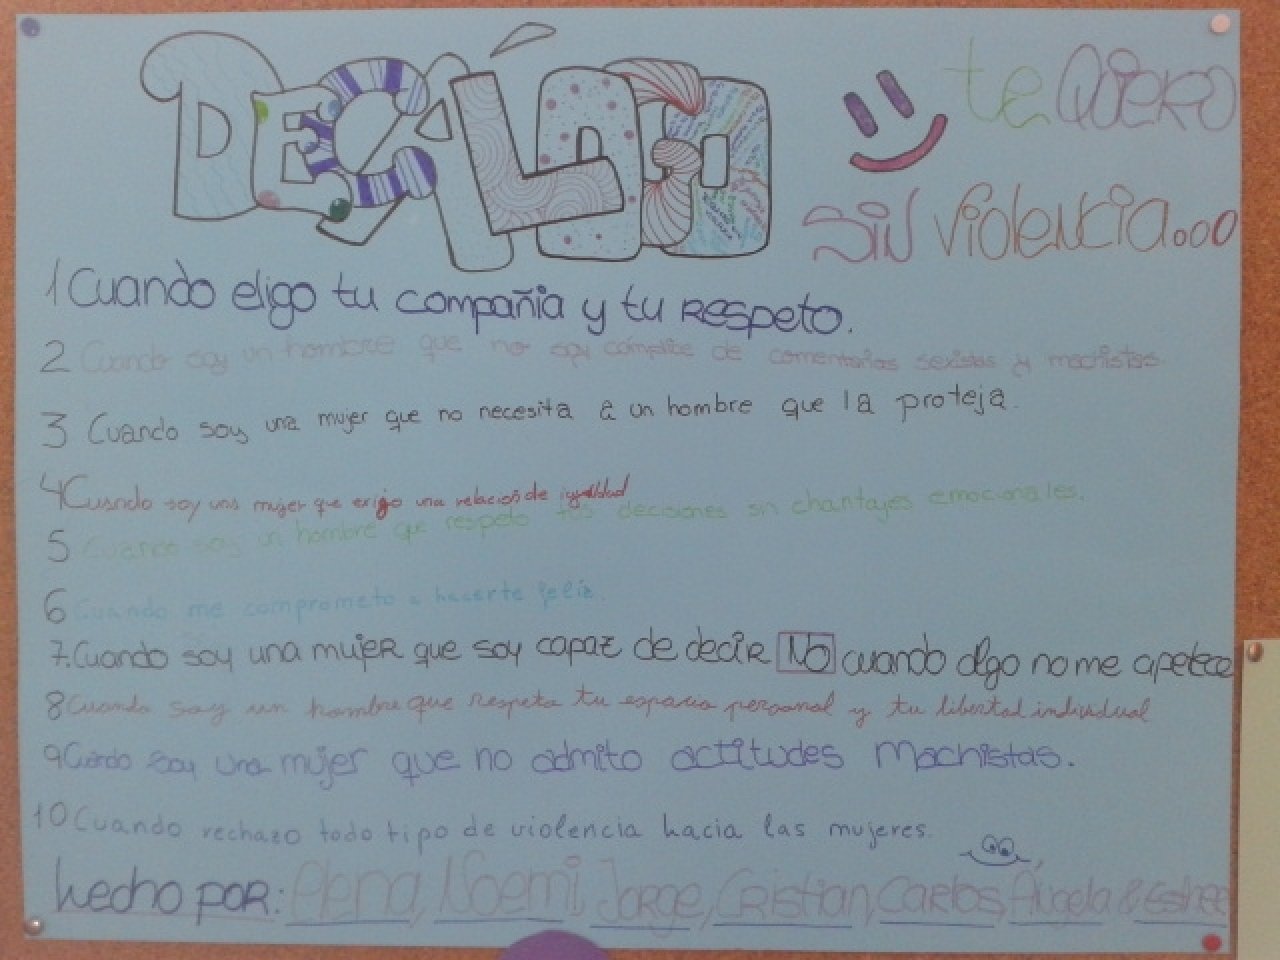 DECÁLOGO
te QUIERO
SIN VIOLENCIA...
1 Cuando eligo tu compañia y tu respeto.
2 Cuando soy un hombre que no soy cómplice de comentarios sexistas y machistas.
3 Cuando soy una mujer que no necesita a un hombre que la proteja.
4 Cuando soy una mujer que exijo una relación de igualdad
5 Cuando soy un hombre que respeto tus decisiones sin chantajes emocionales.
6 Cuando me comprometo a hacerte feliz.
7. Cuando soy una mujer que soy capaz de decir NO cuando algo no me apetece
8 Cuando soy un hombre que respeta tu espacio personal y tu libertad individual
9 Cuando soy una mujer que no admito actitudes machistas.
10 Cuando rechazo todo tipo de violencia hacia las mujeres.
hecho por: Elena, Noemi, Jorge, Cristian, Carlos, Ángela &